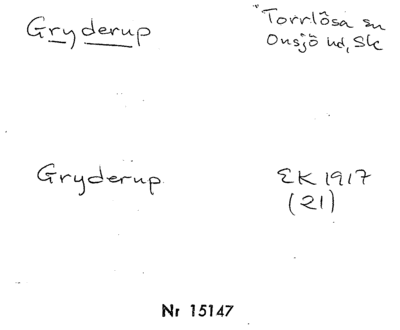 Gryderup
Torrlösa sn
Onsjö hd, Sk
Gryderup
EK 1917
(21)
Nr 15147